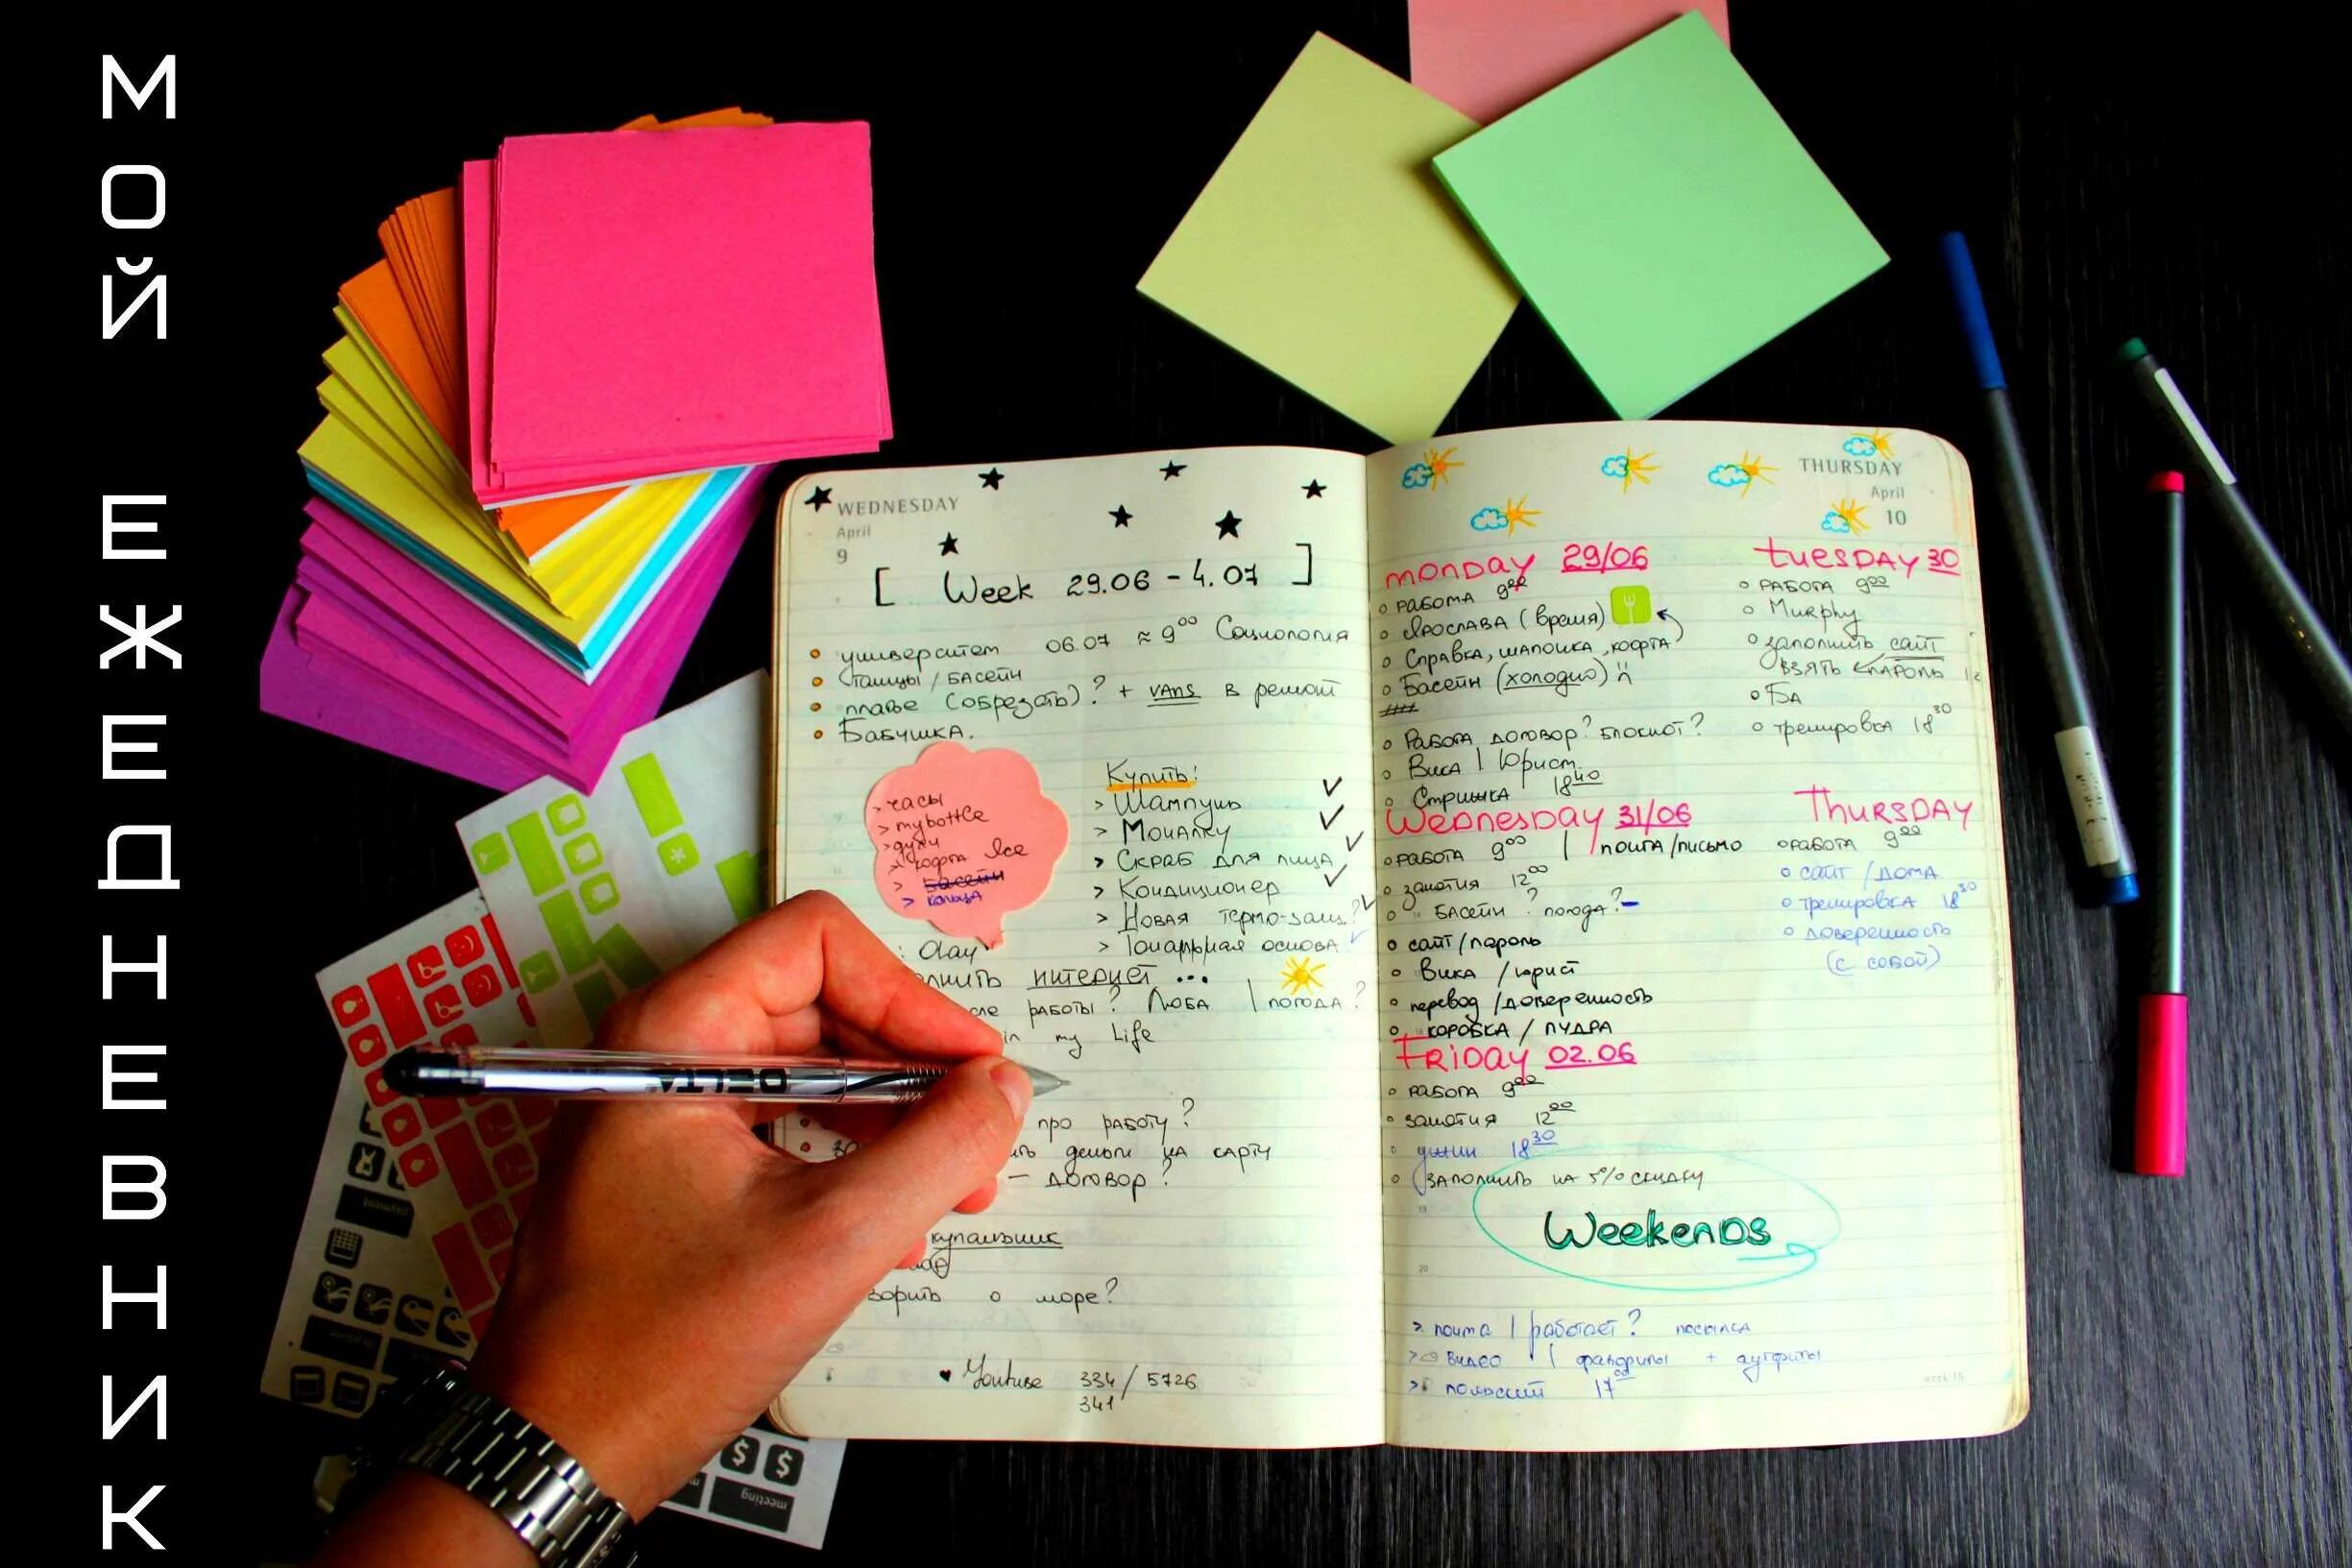 МОЙ ЕЖЕДНЕВНИК
WEDNESDAY
April
9
[ Week 29.06 - 4.07 ]
университет 06.07 ≈ 9⁰⁰ Социология
танцы / басейн
платье (обрезать)? + vans в ремонт
Бабушка.
> часы
> mybottle
> духи
> кофта Все
> басейн
> кольца
Купить:
> Шампунь ✓
> Мочалку ✓
> Скраб для лица ✓
> Кондиционер ✓
> Новая термо-защ? ✓
> Тональная основа ✓
: Olay
лнить интернет ...
сле работы? Люба | погода?
in my Life
про работу?
ить деньги на карту
– договор?
купальник
ворить о море?
♥ Youtube 334 / 5726
341
THURSDAY
April
10
monday 29/06
работа 9⁰⁰
Ярослава (время)
Справка, шапочка, кофта
Басейн (холодно)
Работа договор? блокнот?
Вика | Юрист
Стрижка 18⁴⁰
tuesday 30
работа 9⁰⁰
Murphy
заполнить сайт
взять пароль
БА
тренировка 18³⁰
Wednesday 31/06
работа 9⁰⁰ | почта/письмо
занятия 12⁰⁰
басейн? погода? –
сайт/пароль
Вика / юрист
перевод /доверенность
коробка / пудра
Thursday
работа 9⁰⁰
сайт / дома
тренировка 18³⁰
доверенность
(с собой)
Friday 02.06
работа 9⁰⁰
занятия 12⁰⁰
18³⁰
заполнить на 5% скидку
Weekends
> почта | работает? посылка
> видео | фавориты + аутфиты
> польский 17⁰⁰
week 15
DELTA
payment
meeting